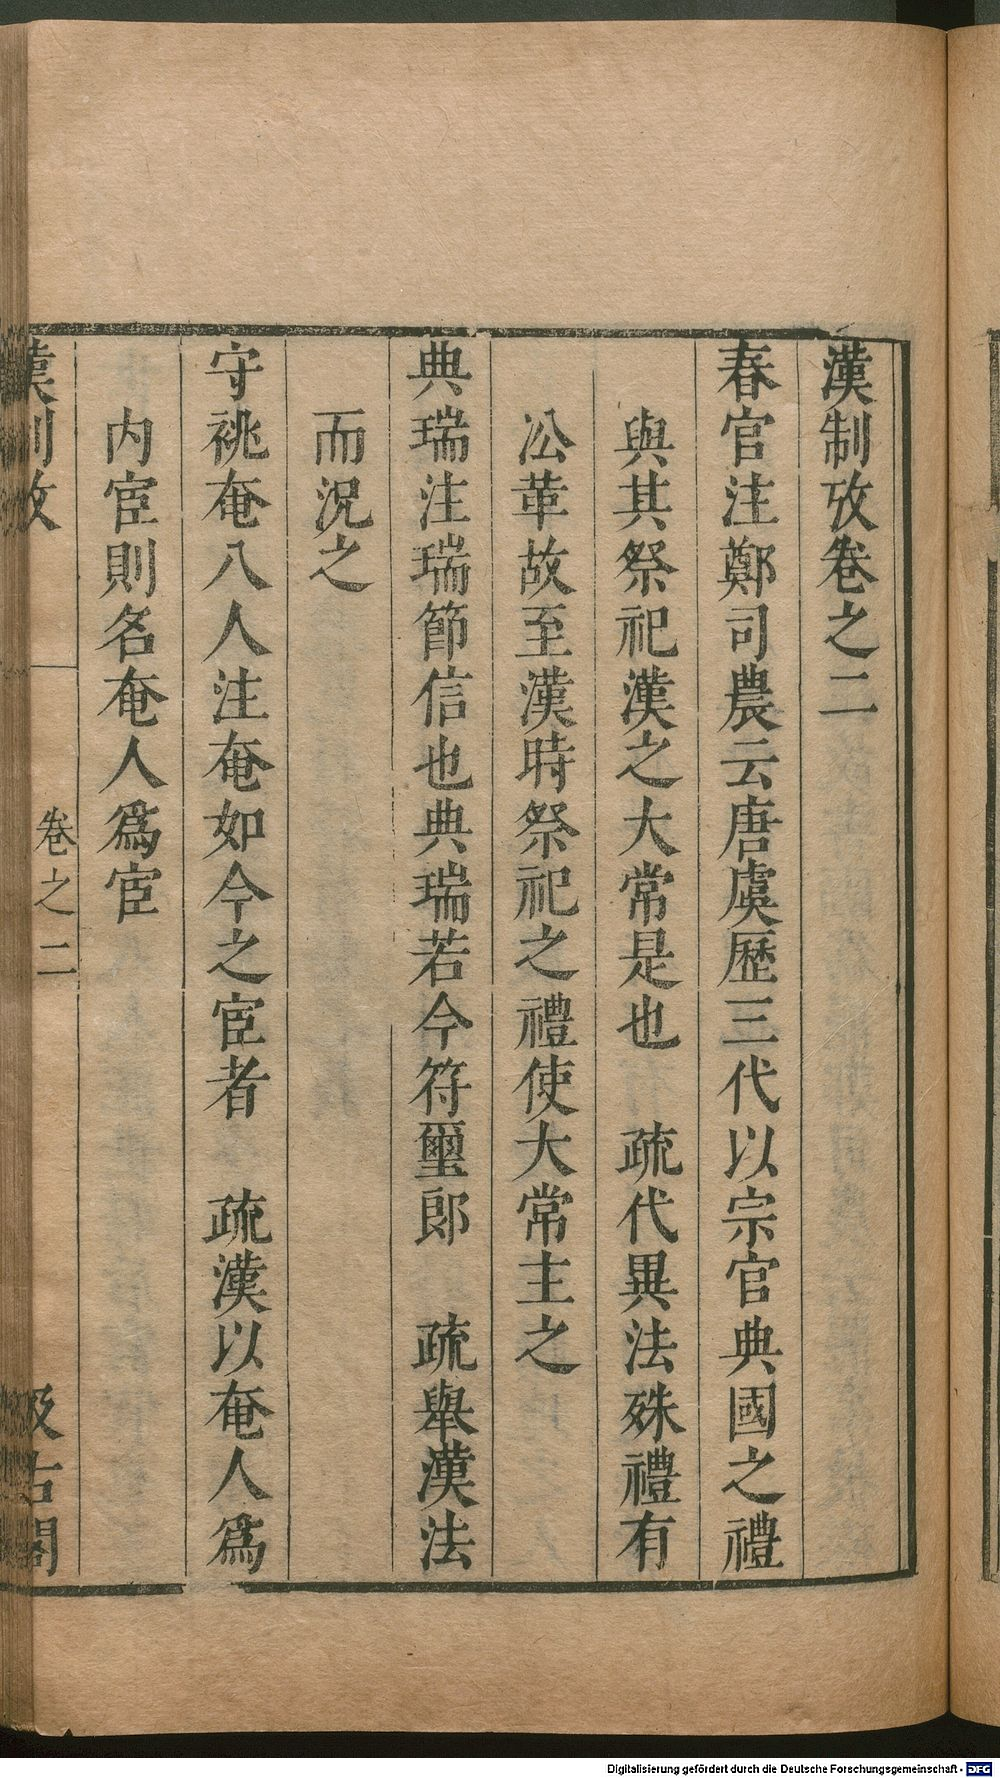 漢制攷卷之二
春官注鄭司農云唐虞歷三代以宗官典國之禮
與其祭祀漢之大常是也　疏代異法殊禮有
㳂革故至漢時祭祀之禮使大常主之
典瑞注瑞節信也典瑞若今符璽郎　疏舉漢法
而況之
守祧奄八人注奄如今之宦者　疏漢以奄人爲
内宦則名奄人爲宦
漢制攷　卷之二　汲古閣
Digitalisierung gefördert durch die Deutsche Forschungsgemeinschaft - DFG